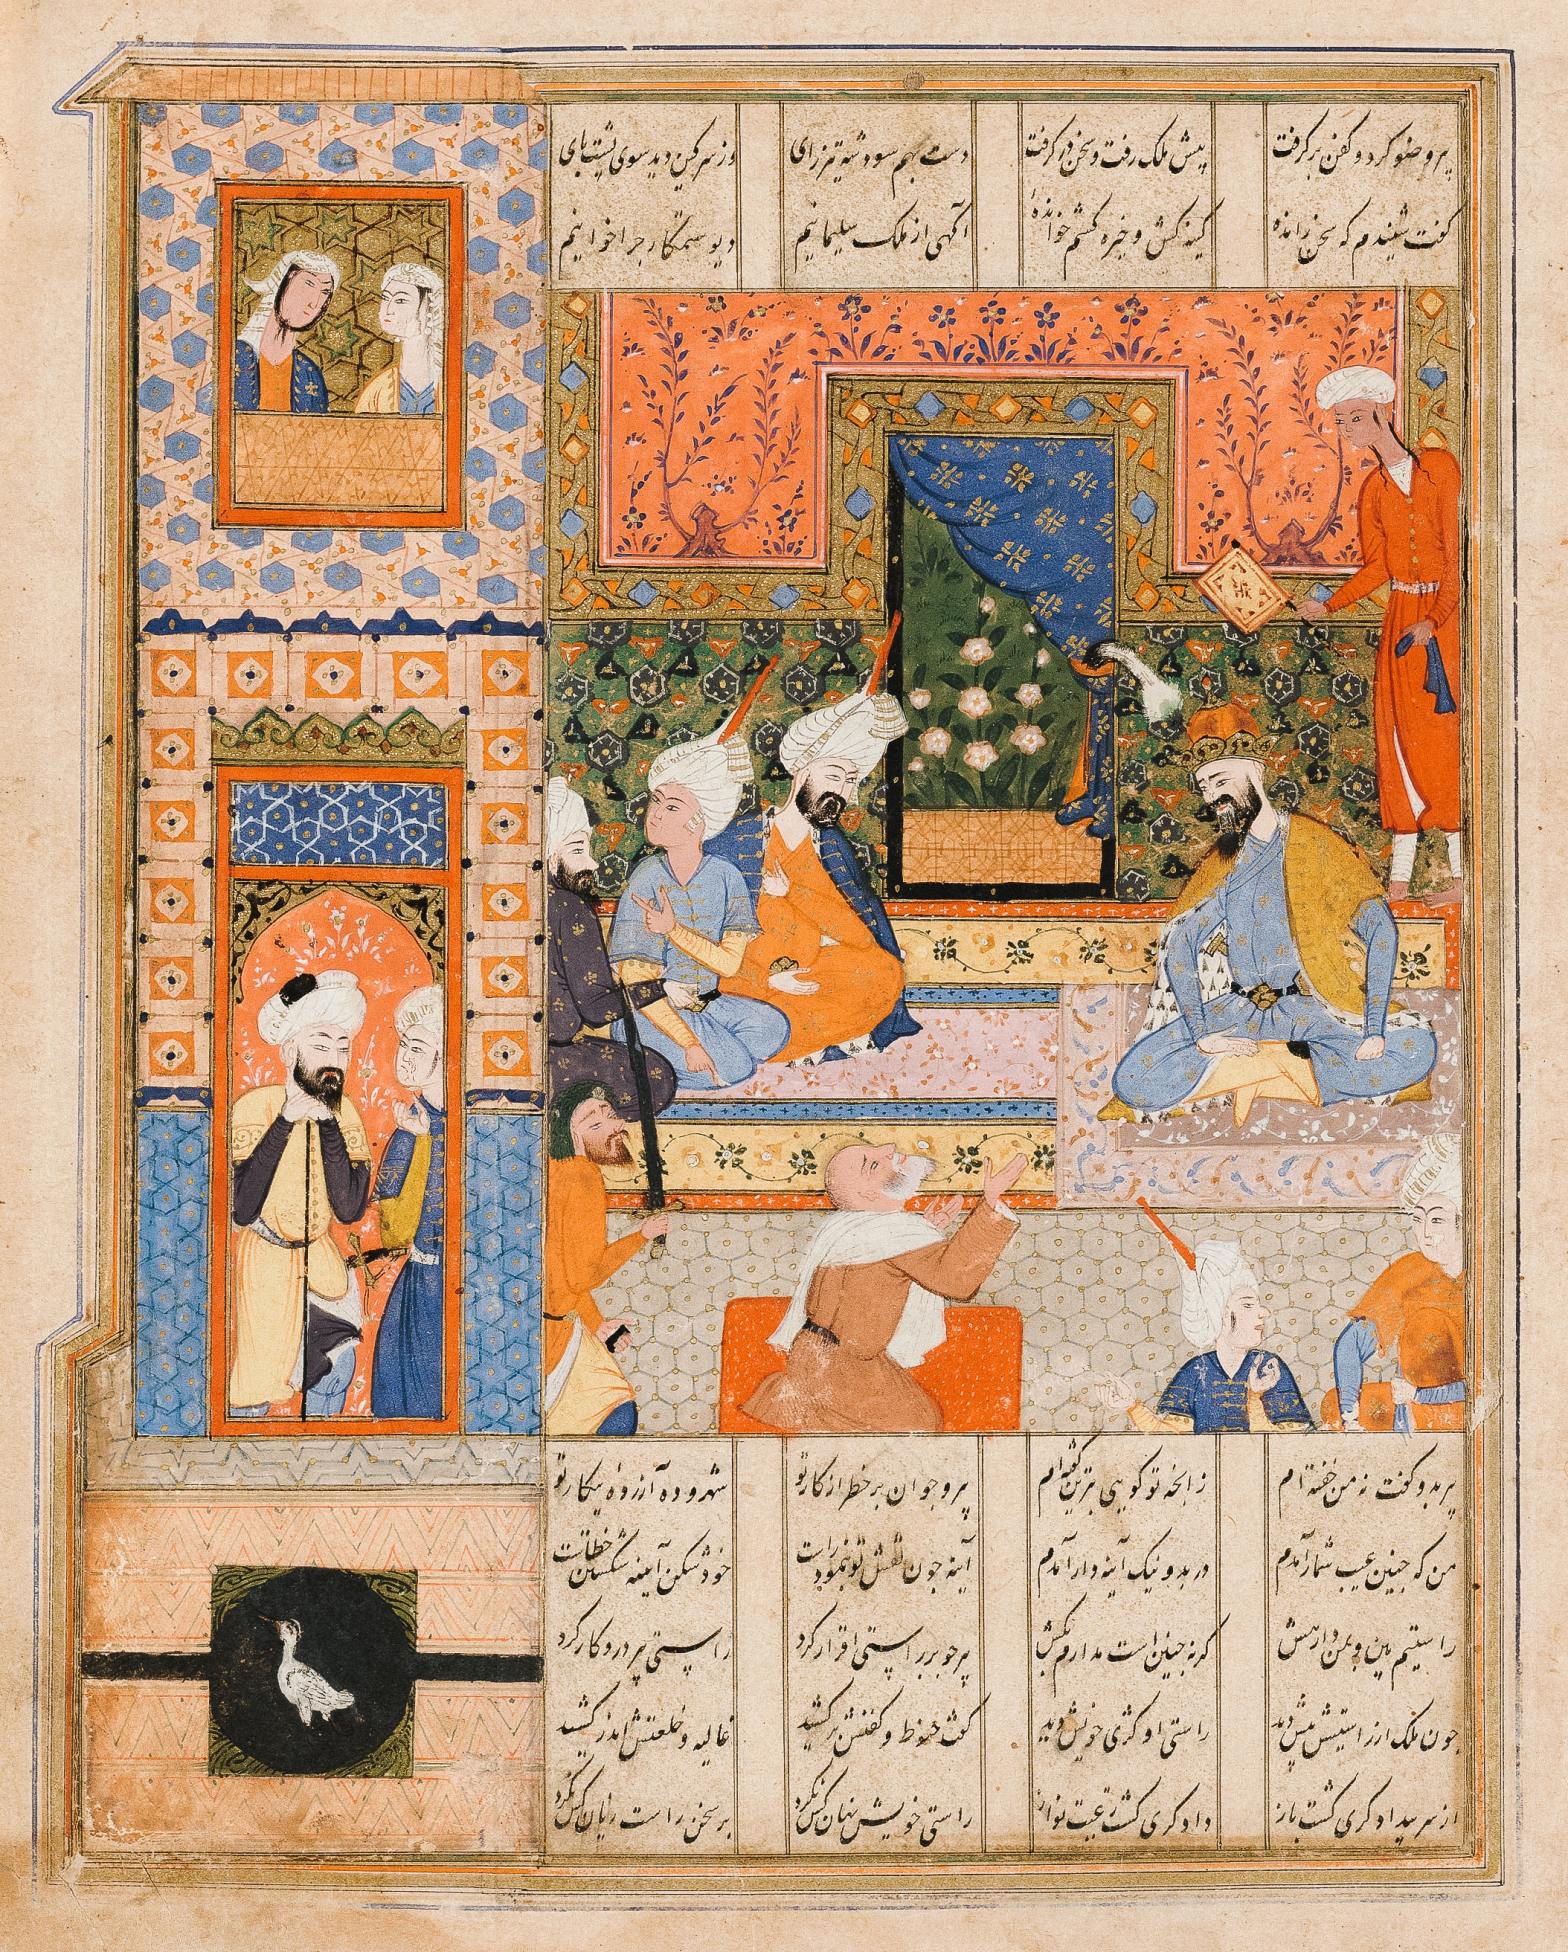 پیر وضو کرد و کفن برگرفت پیش ملک رفت و سخن درگرفت دست بهم سود شه تیزرای وز سر کین دید سوی پشت پای
گفت شنیدم که سخن رانده کینه کش و خیره کشم خوانده آگهی از ملک سلیمانیم دیو ستمکار چرا خوانیم
پیر بدو گفت نه من خفته ام زانچه تو گویی بترین گفته ام پیر و جوان بر خطر از کار تو شهر و ده آزرده ز پیکار تو
من که چنین عیب شمار آمدم در بد و نیک آینه دار آمدم آینه چون نقش تو بنمود راست خود شکن آیینه شکستن خطاست
راستیم بین و بمن دار هش گر نه چنین است بدارم بکش پیر چو بر راستی اقرار کرد راستی پیر درو کار کرد
چون ملک از راستیش پیش دید راستی او کژی خویش دید گفت حنوط و کفنش برکشید غالیه و خلعتش اندر کشید
از سر بیدادگری گشت باز دادگری گشت رعیت نواز راستی خویش نهان کس نکرد بر سخن راست زیان کس نکرد